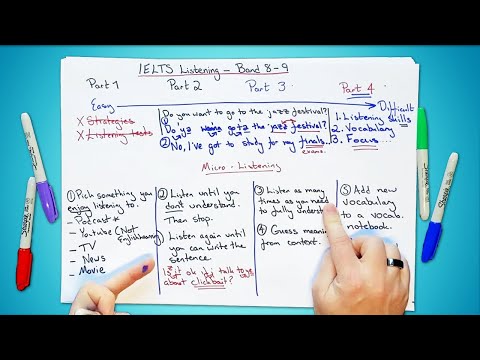 IELTS Listening - Band 8-9
Part 1 Part 2 Part 3 Part 4
Easy Difficult
X Strategies
X Listening tests
Do you want to go to the jazz festival?
① Do yə wanna gotə the jazz festival?
② No, I've got to study for my finals.
exams.
1. Listening skills
2. Vocabulary
3. Focus....
Micro-Listening
① Pick something you
enjoy listening to.
- Podcast *
- Youtube (Not
English learning)
- TV
- News
- Movie
② Listen until you
don't understand.
Then stop.
Listen again until
you can write the
sentence.
Is it ok if I talk to you
about clickbait?
③ Listen as many
times as you need
to fully understand
④ Guess meaning
from context.
⑤ Add new
vocabulary
to a vocab.
notebook.